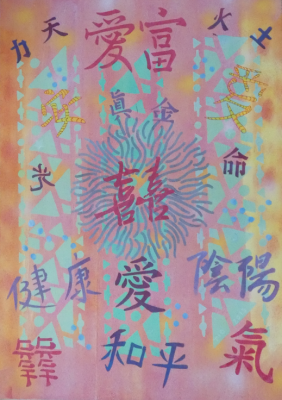 力 天 愛 富 火 土
眞 金
光 囍 命
健康 愛 陰陽
和平 氣